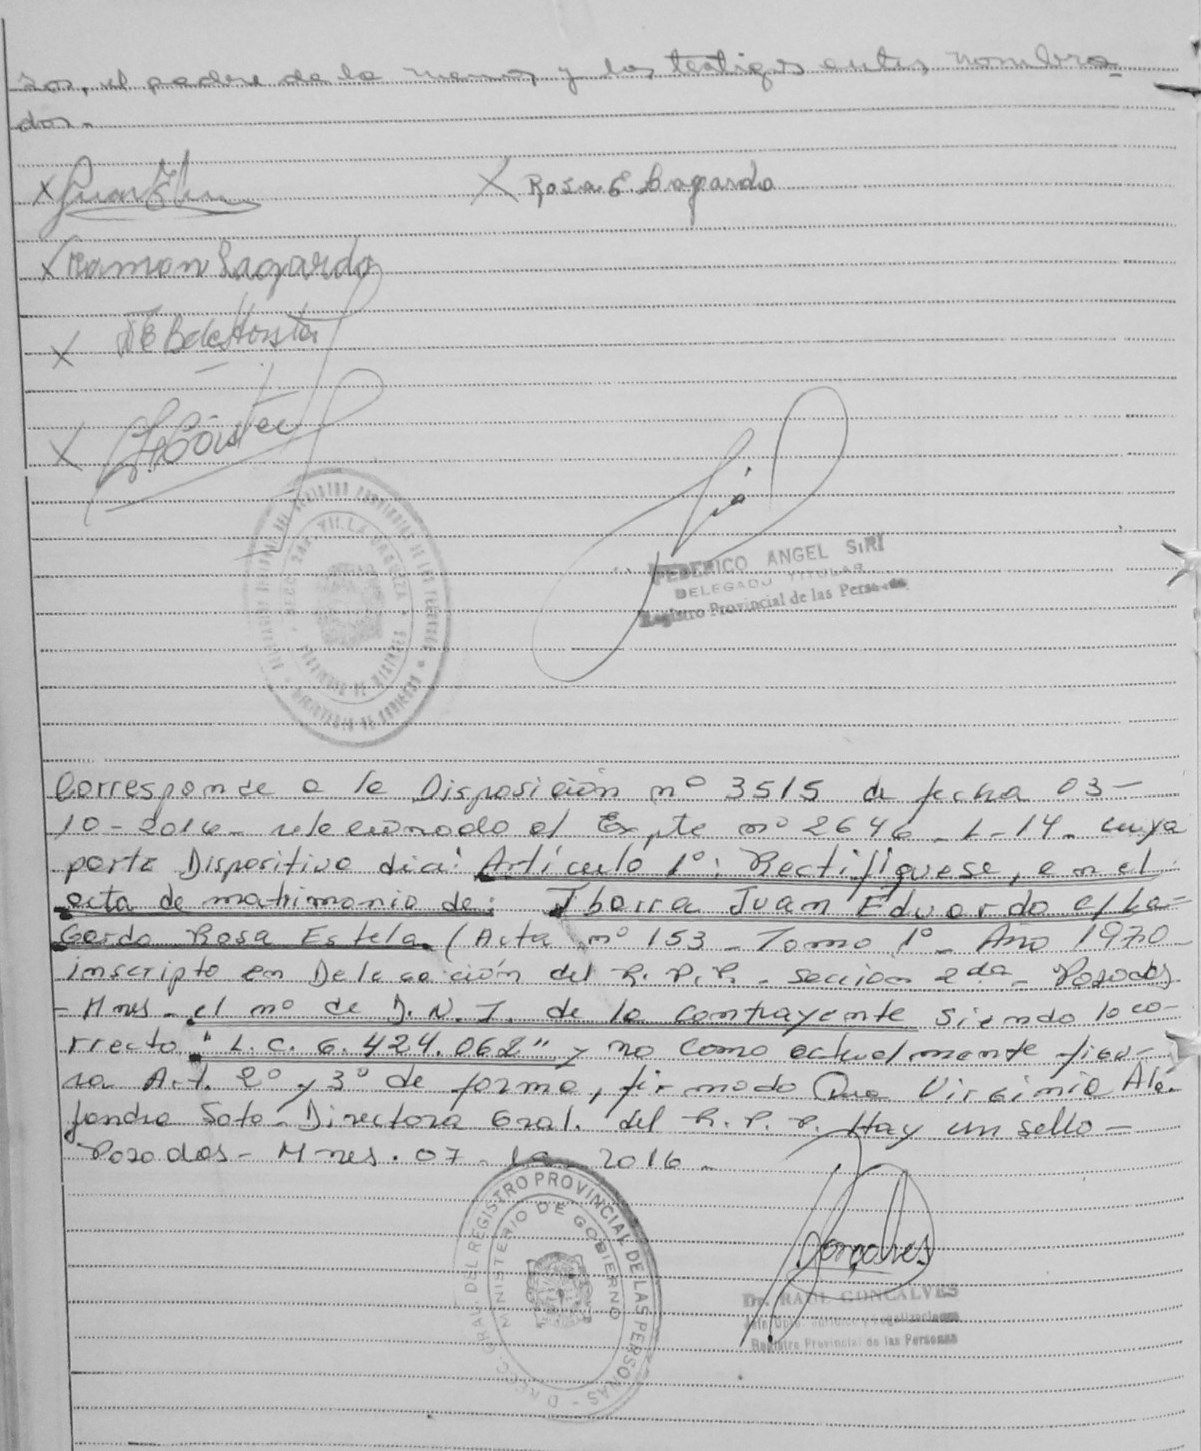 ros, el padre de la menor y los testigos antes nombra-
dos.-
X X Rosa E. Lagardo
X Ramon Lagardo
X
X
FEDERICO ANGEL SIRI
DELEGADO TITULAR
Registro Provincial de las Personas
Corresponde a la Disposición nº 3515 de fecha 03-
10-2016- relacionado al Expte nº 2646-L-14- cuya
parte Dispositiva dice: Artículo 1º: Rectifíquese, en el
acta de matrimonio de: Ibarra Juan Eduardo c/ La-
Gardo Rosa Estela. (Acta nº 153- Tomo 1º- Año 1970
inscripto en Delegación del R.P.P.- Seccion 2da- Posadas
-Mnes- el nº de D.N.I. de la contrayente siendo lo co-
rrecto "L.C. 6.424.062" y no como actualmente figu-
ra Art. 2º y 3º de forma, firmado Dra Virginia Ale-
jandra Soto- Directora Gral. del R.P.P. Hay un sello-
Posadas- Mnes. 07-10-2016-
DIRECC. GRAL. DEL REGISTRO PROVINCIAL DE LAS PERSONAS
MINISTERIO DE GOBIERNO
Goncalves
Dr. RAUL GONCALVES
Registro Provincial de las Personas